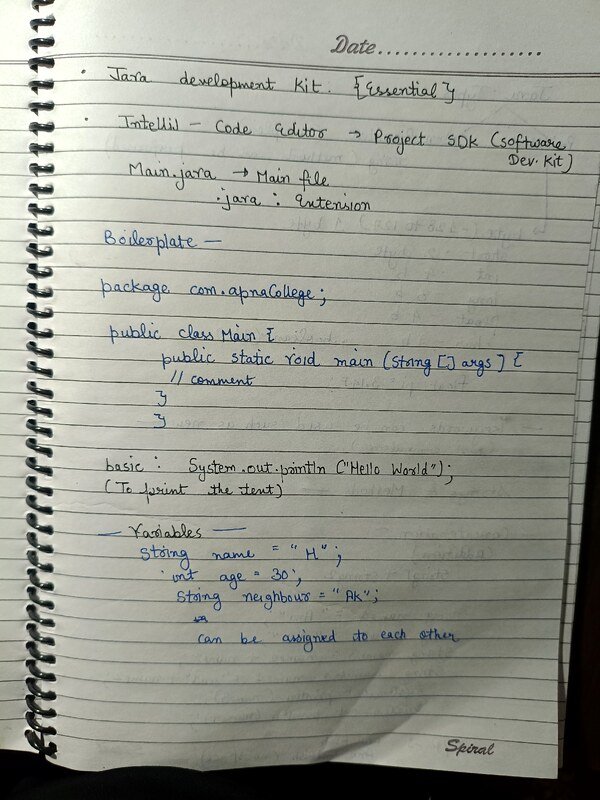 Date....................
• Java development kit. {Essential}
• IntelliJ - Code Editor → Project SDK (Software
Dev. Kit)
Main.java → Main file
.java : Extension
Boilerplate —
package com.apnaCollege;
public class Main {
public static void main (String [] args) {
// comment
}
}
basic : System.out.println ("Hello World");
(To print the text)
— Variables —
String name = "H";
int age = 30;
String neighbour = "AK";
can be assigned to each other
Spiral